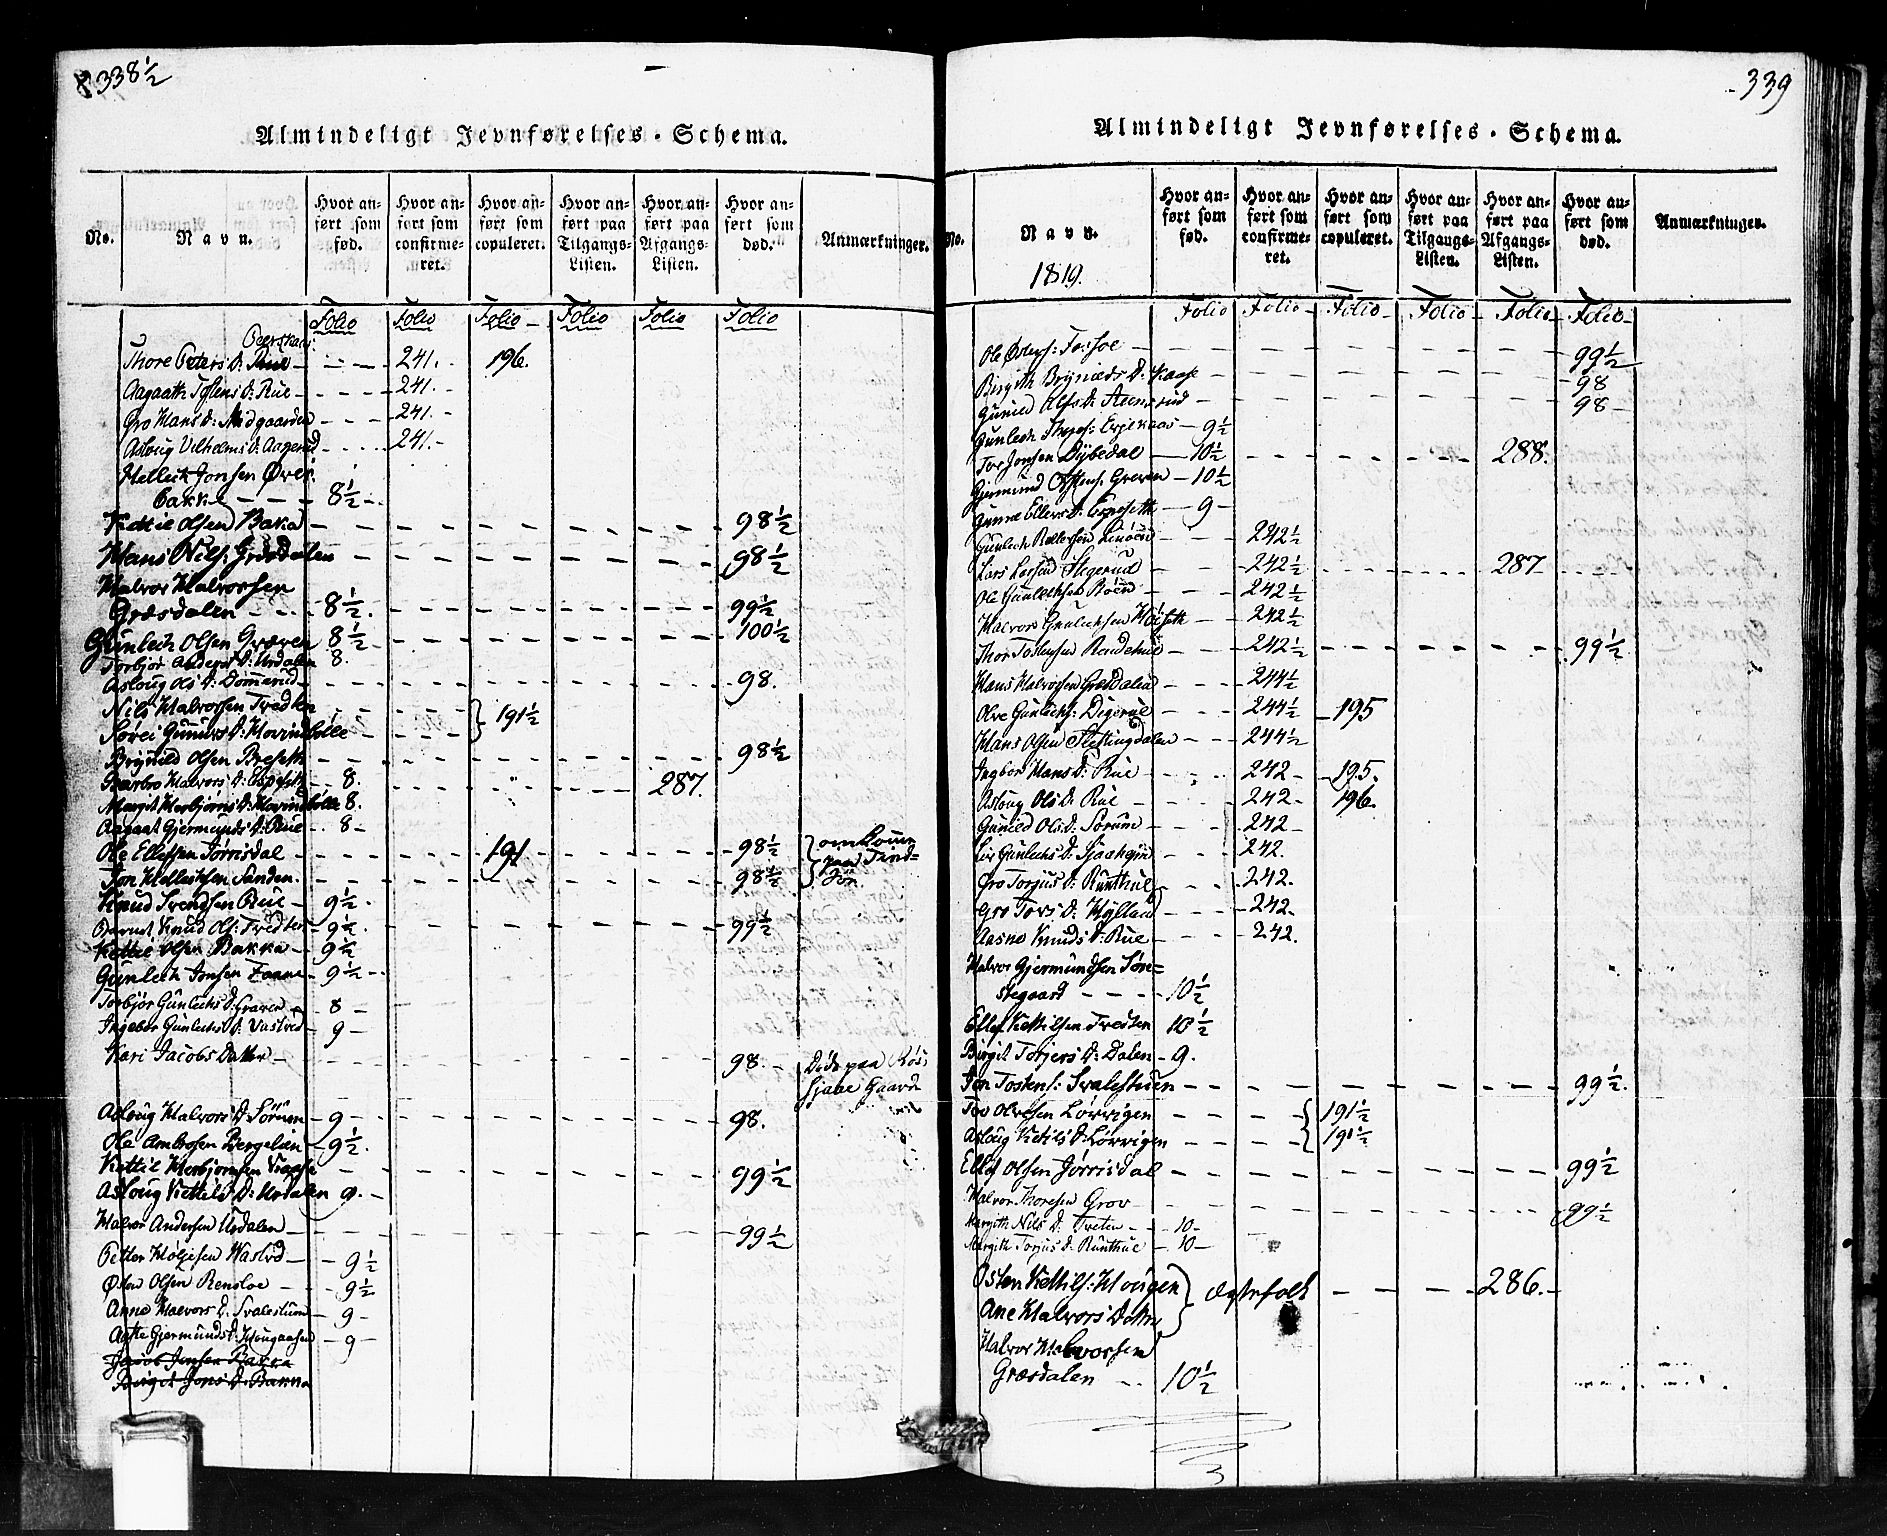 338½
Almindeligt Jevnførelses-Schema.
No.
Navn.
Hvor anført som fød.
Hvor anført som confirmeret.
Hvor anført som copuleret.
Hvor anført paa Tilgangs-Listen.
Hvor anført paa Afgangs-Listen.
Hvor anført som død.
Anmærkninger.
Folio Folio Folio Folio Folio Folio
Thore Peters D: Rue 241. 196.
Aagaath Tostens D: Rue 241.
Gro Hans D: Midgaarden 241.
Asloug Vilhelms D: Aagerud 241.
Helleck Jonsen Øver
Bakke 8½
Kettil Olsen Baka 98½
Hans Nils: Græsdalen 98½
Halvor Halvorsen
Græsdalen 8½. 99½
Gunlech Olsen Græven 8½ 100½
Torbjør Anders D: Urdalen 8.
Aslaug Ols D: Dommerud 98.
Nils Halvorsen Tredten
Sørei Gunnurs D: Hovindbølle } 191½
Brynild Olsen Breseth 98½
Halvors D: Espeseth 8. 287.
Margit Herbjørns D: Hovindbølle 8.
Aagaat Gjermunds D: Rue 8
Ole Ellefsen Jørrisdal 191 98½ } omkom
Jon Helleksen Sanden. 98½ paa Tind=
Søe
Knud Svendsen Rue 9½.
Knud Ols: Tredten 9½. 99½
Kettil Olsen Bakka 9½
Gunlech Jonsen Faane 9½
Torbjør Gunlechs D: Graver 8
Ingebor Gunlechs D: Vaslvid 9
Kari Jacobs Datter 98. Døde paa
Gaard
Aslaug Halvors D: Sørum 9 98.
Ole Ambrosen Bergelan 9½.
Kettil Herbjørnsen Kaasa 99½
Asloug Kettils D: Urdalen 9.
Halvor Andersen Urdalen 99½
Petter Høljesen Waslvd 9½
Østen Olsen Rensloe 9½
Anne Halvors D: Svalestuen 9
Aase Gjermunds D: Hougaasen 9
Jacob Jonsen Bakka
Birgit Jons D: Bakka
339
Almindeligt Jevnførelses-Schema.
No.
Navn.
1819.
Hvor anført som fød.
Hvor anført som confirmeret.
Hvor anført som copuleret.
Hvor anført paa Tilgangs-Listen.
Hvor anført paa Afgangs-Listen.
Hvor anført som død.
Anmærkninger.
Folio Folio Folio Folio Folio Folio
Ole Østens: Fossoe 99½
Birgith Brynilds D: Kaase 98
Gunild Olfs D: Steensrud 98
Gunlech Thores: 9½
Tor Jonsen Dybedal 10½ 288.
Gjermund Græven 10½
Gunne Ellevs D: Espeseth 9
Gunlech 242½
Lars Larsen Stegerud 242½ 287
Ole Gunlechsen Boen 242½
Halvor Gunlechsen Høyseth 242½
Thor Tostensen Rendehue 242½ 99½
Hans Halvorsen Græsdalen 244½
Olve Gunlechs: Digerue 244½ 195
Hans Olsen Slettingdalen 244½
Ingbor Hans D: Rue 242 195.
Aslaug Ols D: Rue 242 196.
Gunild Ols D: Sorum 242
Liv Gunlechs D: 242.
Gro Torjus D: Runthue 242.
Gro Tovs D: Hylland 242.
Aasne Knuds D: Rue 242.
Halvor Gjermundsen Søre=
stegaard 10½
Ellef Kettilsen Tredten 10½
Birgit Torjers D: Dalen 9.
Jon Tostens: Svalestuen 99½.
Tov Olvesen Lørrigen { 191½
Aslaug Kettils D: Lørrigen 191½
Ellef Olsen Jørrisdal 99½
Halvor Thoresen Grov 99½
Margith Nils D: Treten 10
Margith Torjus D: Runthue 10
Østen Kettils: Hougen } ægtefolk 286.
Ane Halvors Datter
Halvor Halvorsen
Græsdalen 10½